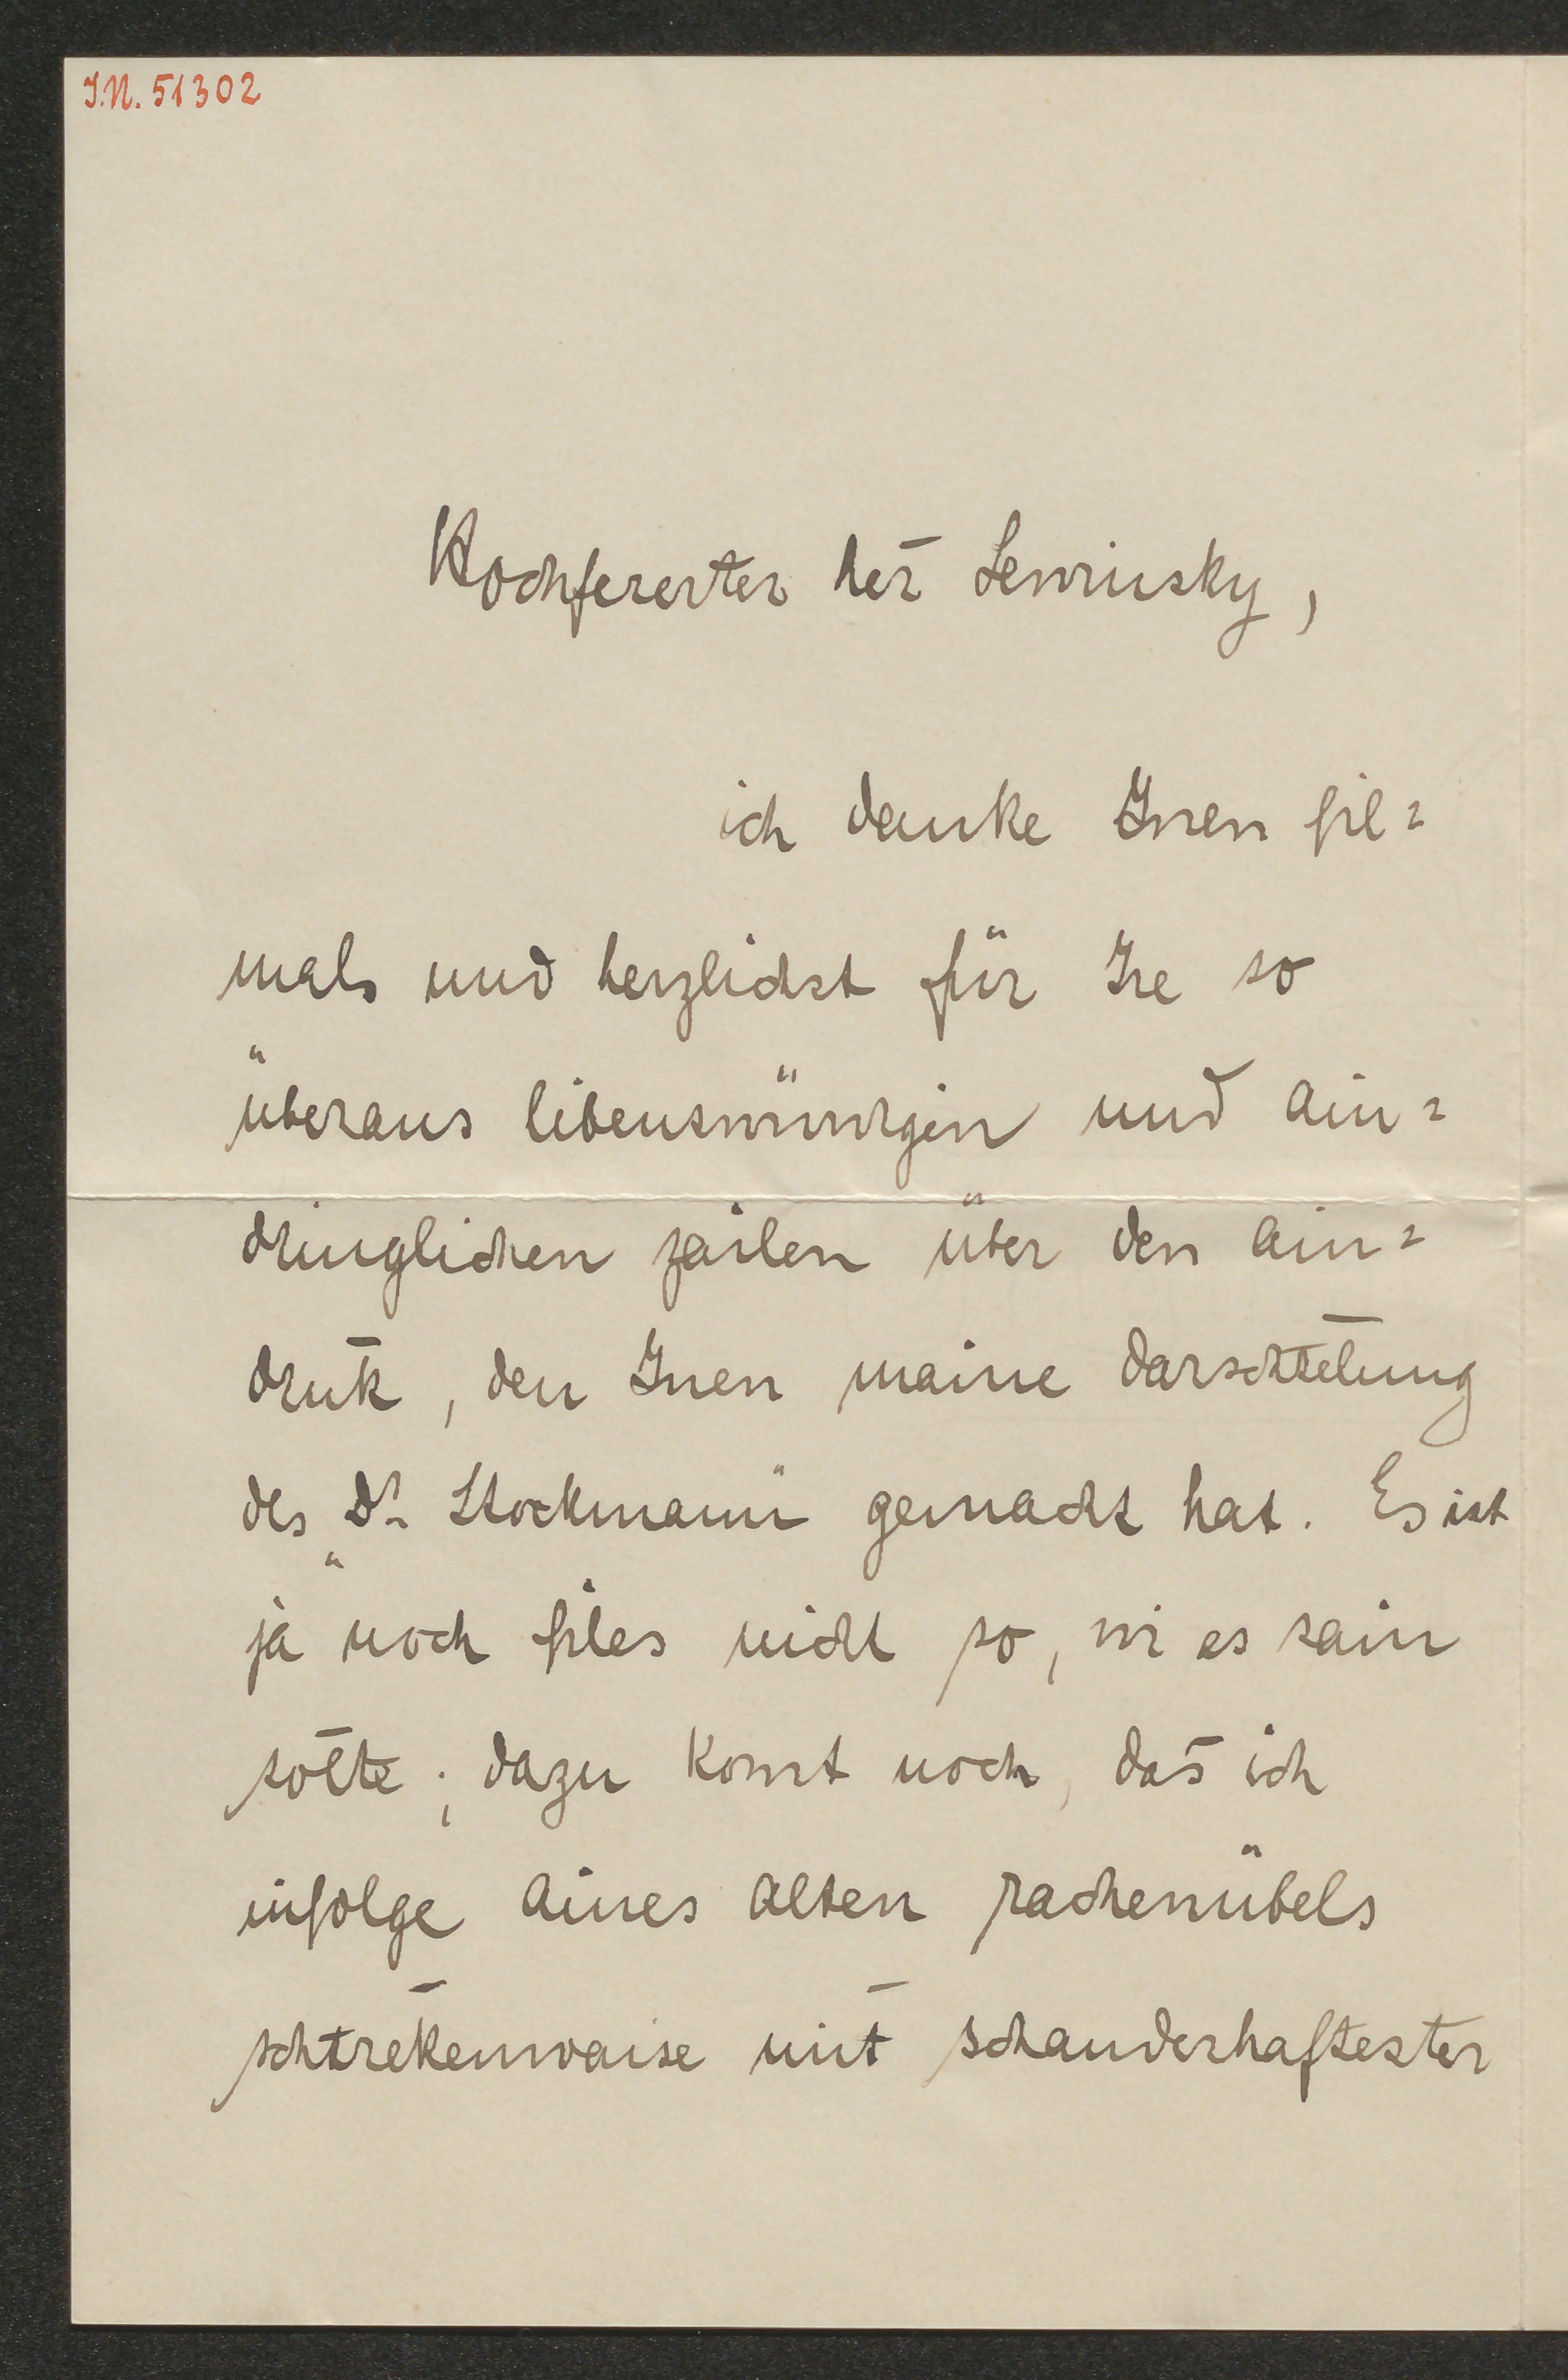 I.N. 51302
Hochfererter her̄ Lewinsky,
ich danke Inen fil=
mals und herzlichst für Ire so
überaus libenswürdigen und ain=
dringlichen zailen über den ain=
druk̄, den Inen maine darschtel̄ung
des Dr. „Stockmann“ gemacht hat. Es ist
ja noch files nicht so, wi es sain
sol̄te; dazu komt noch, das̄ ich
infolge aines alten rachenübels
schtrek̄enwaise mit̄ schauderhaftester